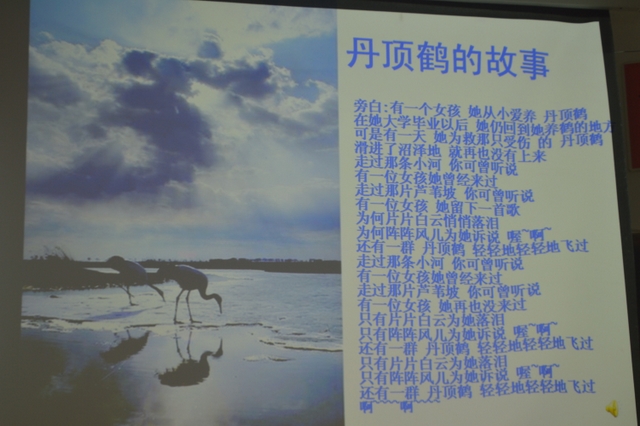 丹顶鹤的故事
旁白:有一个女孩 她从小爱养 丹顶鹤
在她大学毕业以后 她仍回到她养鹤的地方
可是有一天 她为救那只受伤 的 丹顶鹤
滑进了沼泽地 就再也没有上来
走过那条小河 你可曾听说
有一位女孩她曾经来过
走过那片芦苇坡 你可曾听说
有一位女孩 她留下一首歌
为何片片白云悄悄落泪
为何阵阵风儿为她诉说 喔~啊~
还有一群 丹顶鹤 轻轻地轻轻地飞过
走过那条小河 你可曾听说
有一位女孩她曾经来过
走过那片芦苇坡 你可曾听说
有一位女孩 她再也没来过
只有片片白云为她落泪
只有阵阵风儿为她诉说 喔~啊~
还有一群 丹顶鹤 轻轻地轻轻地飞过
只有片片白云为她落泪
只有阵阵风儿为她诉说 喔~啊~
还有一群 丹顶鹤 轻轻地轻轻地飞过
啊 啊